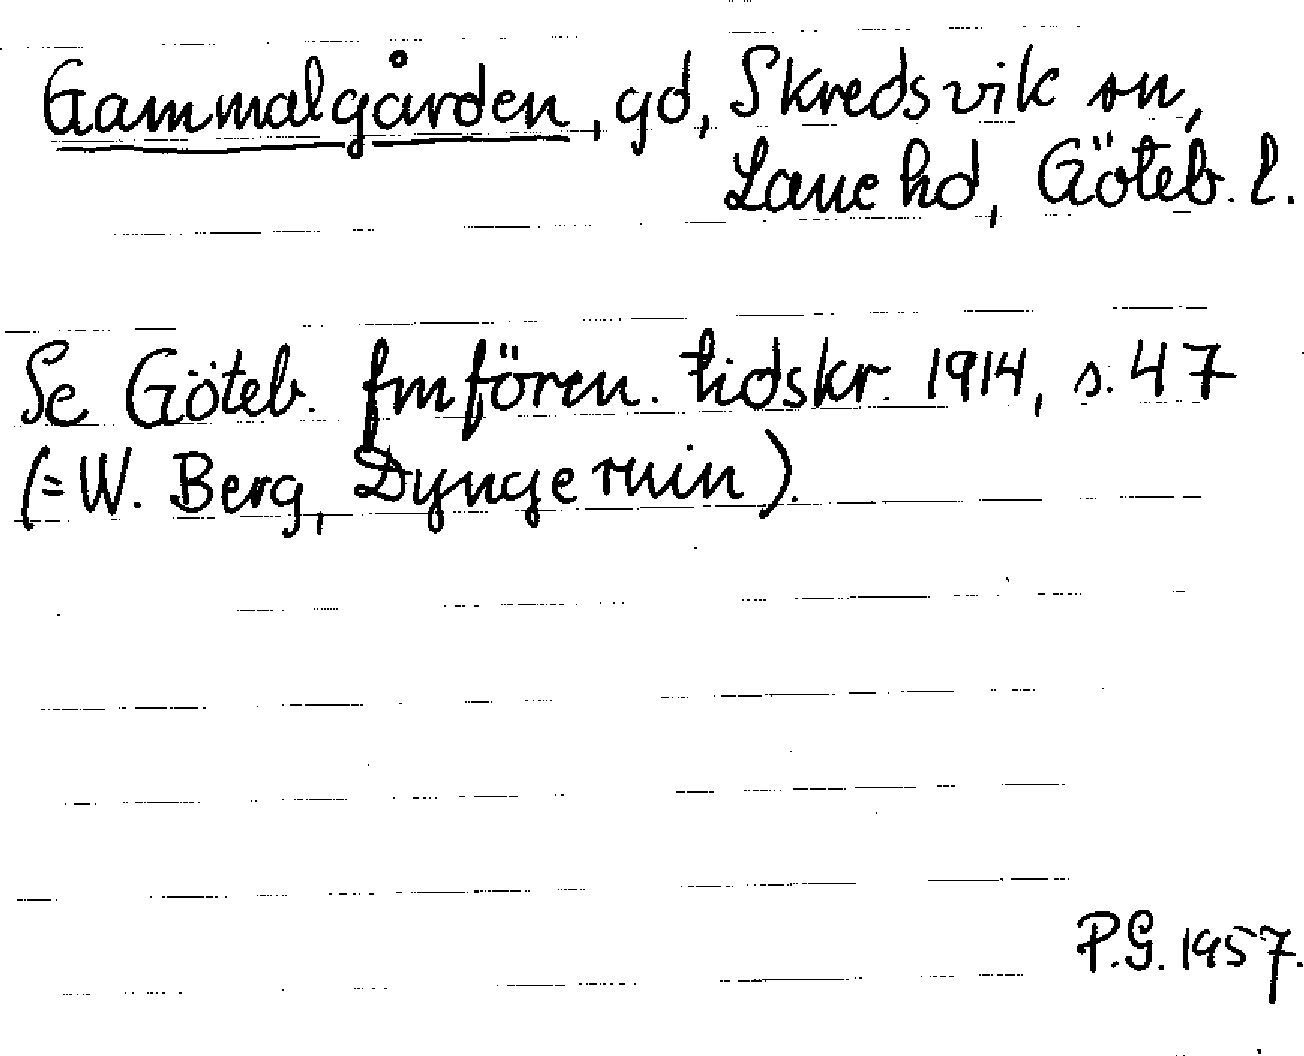 Gammalgården, gd, Skredsvik sn,
Lane hd, Göteb. l.
Se Göteb. fmfören. tidskr. 1914, s. 47
(= W. Berg, Dynge ruin).
P.G. 1957.